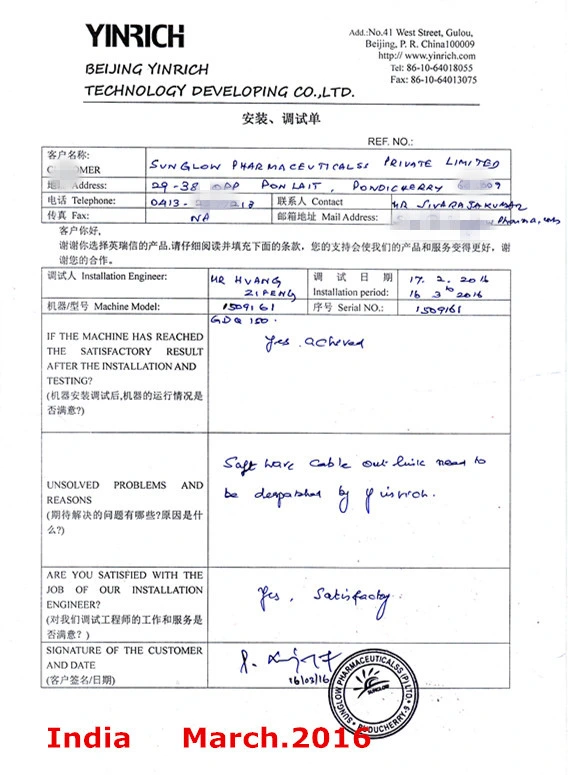 YINRICH
BEIJING YINRICH
TECHNOLOGY DEVELOPING CO.,LTD.
Add.:No.41 West Street, Gulou,
Beijing, P. R. China100009
http:// www.yinrich.com
Tel: 86-10-64018055
Fax: 86-10-64013075
安装、调试单
REF. NO.:
客户名称: SUNGLOW PHARMACEUTICALSS PRIVATE LIMITED
Address: 29-38 ODP PONLAIT, PONDICHERRY
电话 Telephone: 0413- 联系人 Contact MR SIVARAJAKUMAR
传真 Fax: NA 邮箱地址 Mail Address:
客户你好,
谢谢你选择英瑞信的产品,请仔细阅读并填充下面的条款，您的支持会使我们的产品和服务变得更好，谢
谢您的合作。
调试人 Installation Engineer: MR HUANG ZIFENG 调试日期 Installation period: 17. 2. 2016 16 3 2016
机器/型号 Machine Model: 1509161 序号 Serial NO.: 1509161
GDQ 150.
IF THE MACHINE HAS REACHED
THE SATISFACTORY RESULT
AFTER THE INSTALLATION AND
TESTING?
(机器安装调试后,机器的运行情况是
否满意?)
Yes. acheved
UNSOLVED PROBLEMS AND
REASONS
(期待解决的问题有哪些?原因是什
么?)
Soft ware cable out link need to
be despatched by Yinrich.
ARE YOU SATISFIED WITH THE
JOB OF OUR INSTALLATION
ENGINEER?
(对我们调试工程师的工作和服务是
否满意？)
Yes, Satisfactory
SIGNATURE OF THE CUSTOMER
AND DATE
(客户签名/日期)
16/03/16
SUNGLOW PHARMACEUTICALSS (P) LTD.
SUNGLOW
PUDUCHERRY-9
India March.2016